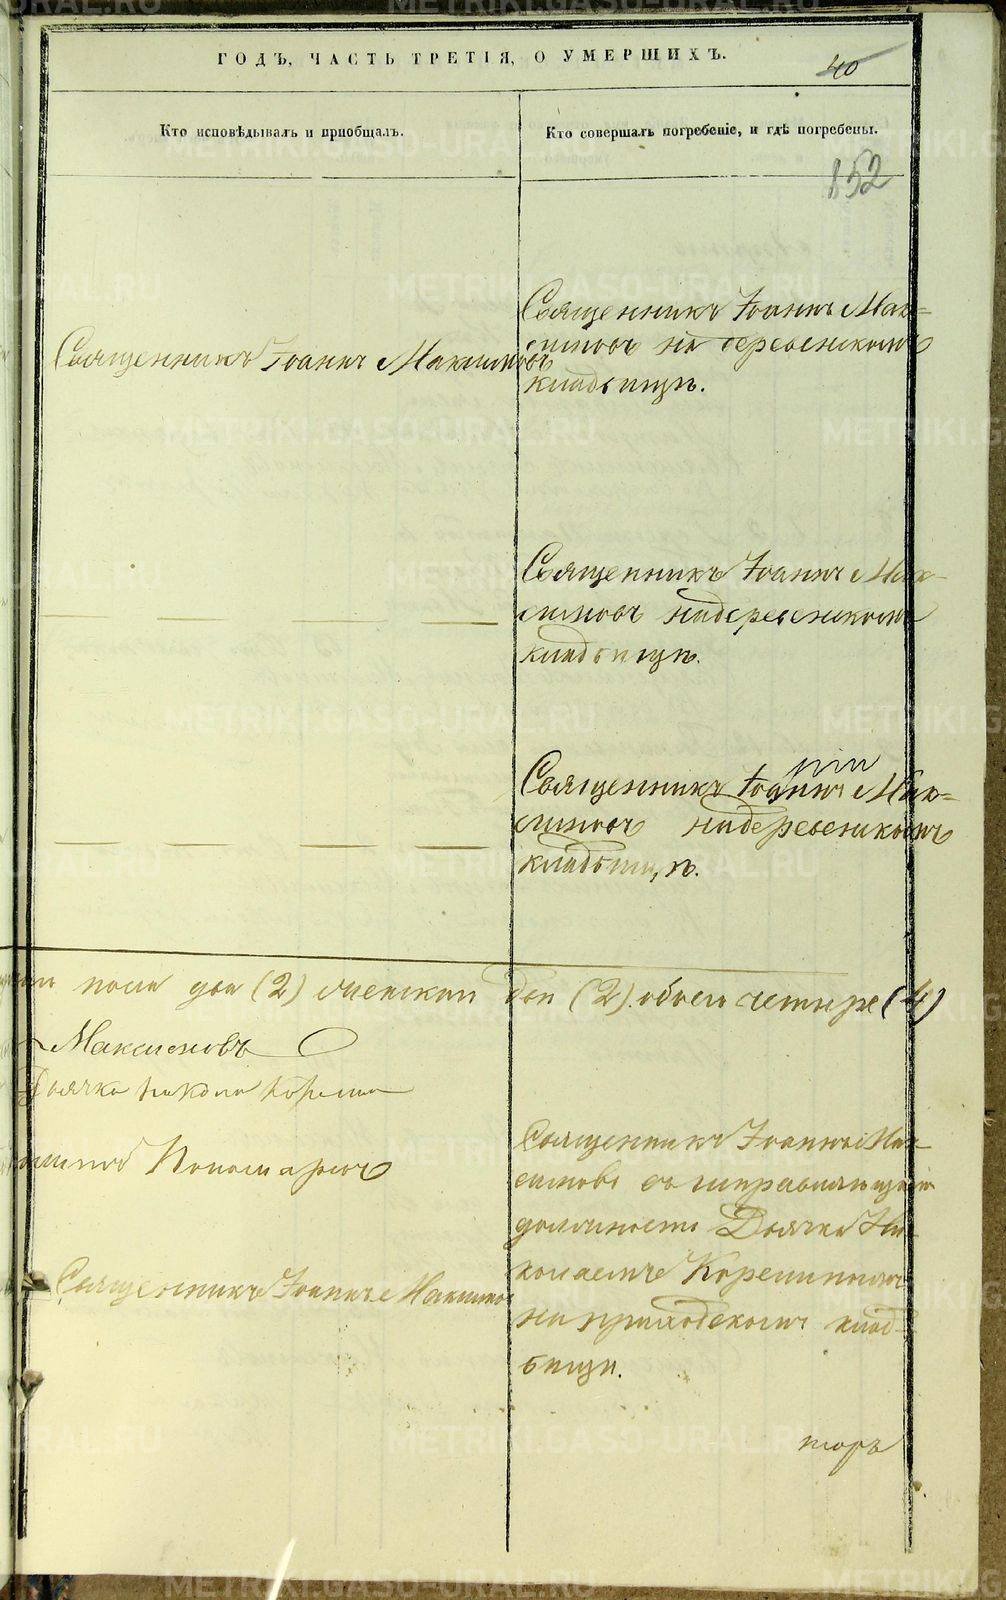 ГОДЪ, ЧАСТЬ ТРЕТІЯ, О УМЕРШИХЪ.
40
Кто исповѣдывалъ и пріобщалъ.
Кто совершалъ погребеніе, и гдѣ погребены.
852
Священникъ Іоаннъ Максимовъ
Священникъ Іоаннъ Мак-
симовъ на деревенскомъ
кладбищѣ.
Священникъ Іоаннъ Мак-
симовъ на деревенскомъ
кладбищѣ.
Священникъ Іоаннъ Мак-
симовъ на деревенскомъ
кладбищѣ.
пола два (2) женска два (2). обоего четыре (4)
Максимовъ
Дьячка Никола
Пономарь
Священникъ Іоаннъ Максимовъ
Священникъ Іоаннъ Мак-
симовъ съ исправляющимъ
должность Дьячка Ни-
колаемъ
на приходскомъ клад-
бищѣ.
METRIKI.GASO-URAL.RU